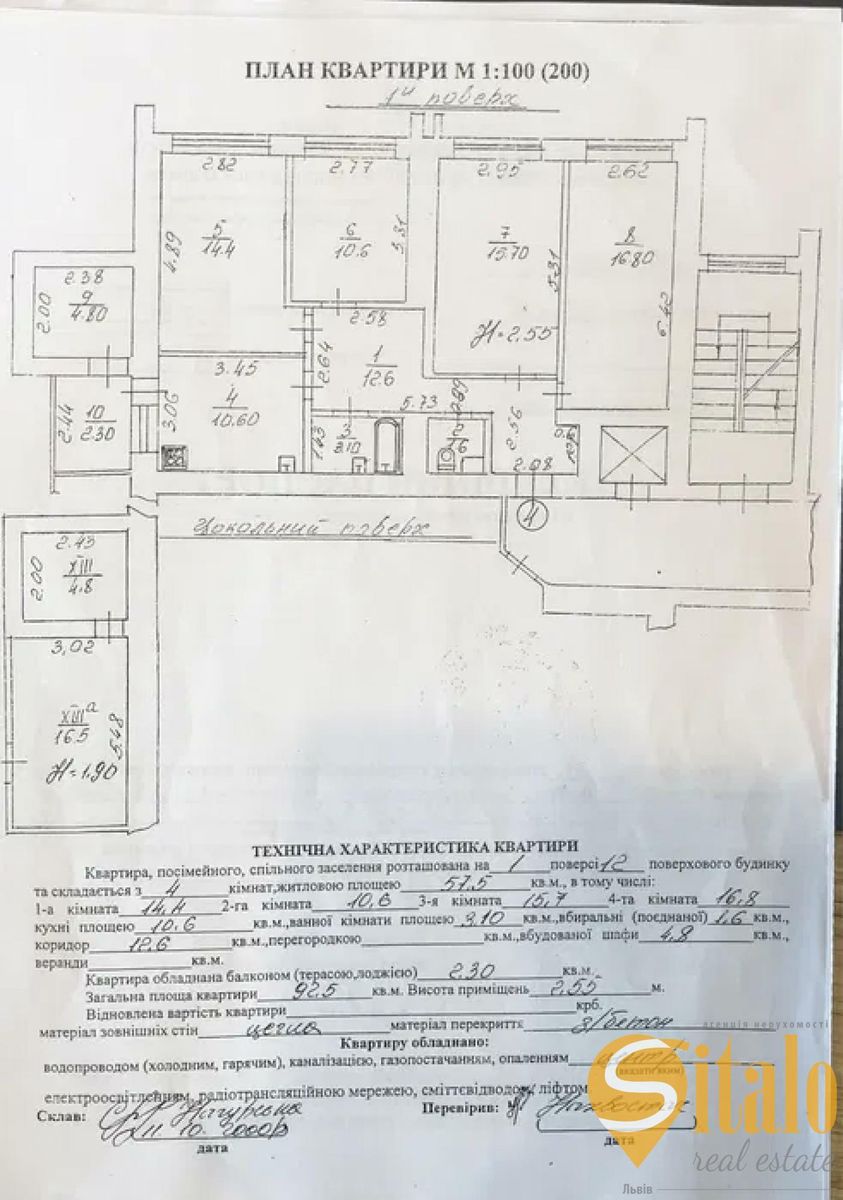 ПЛАН КВАРТИРИ М 1:100 (200)
1й поверх
2.82
2.77
2.95
2.62
5
14.4
4.89
6
10.6
5.31
7
15.70
5.31
8
16.80
6.42
2.38
9
4.80
2.00
2.58
H=2.55
3.45
2.64
1
12.6
4
10.60
3.06
5.73
2.89
2.56
2.44
10
2.30
1.43
3
3.10
2
1.6
2.08
4
Цокольний поверх
2.43
XIII
4.8
2.00
3,02
XIIIа
16.5
5.48
H=1.90
ТЕХНІЧНА ХАРАКТЕРИСТИКА КВАРТИРИ
Квартира, посімейного, спільного заселення розташована на 1 поверсі 12 поверхового будинку
та складається з 4 кімнат,житловою площею 57.5 кв.м., в тому числі:
1-а кімната 14.4 2-га кімната 10.6 3-я кімната 15,7 4-та кімната 16.8
кухні площею 10.6 кв.м.,ванної кімнати площею 3.10 кв.м.,вбиральні (поєднаної) 1.6 кв.м.,
коридор 12.6 кв.м.,перегородкою кв.м.,вбудованої шафи 4.8 кв.м.,
веранди кв.м.
Квартира обладнана балконом (терасою,лоджією) 2.30 кв.м.
Загальна площа квартири 92.5 кв.м. Висота приміщень 2.55 м.
Відновлена вартість квартири крб.
матеріал зовнішніх стін цегла матеріал перекриття з/бетон
агенція нерухомості
Квартиру обладнано:
водопроводом (холодним, гарячим), каналізацією, газопостачанням, опаленням центр
(вказати яким)
електроосвітленням, радіотрансляційною мережею, сміттєвідводом, ліфтом
Склав: Перевірив:
11.10.2000р
дата дата
Sitalo
real estate
Львів